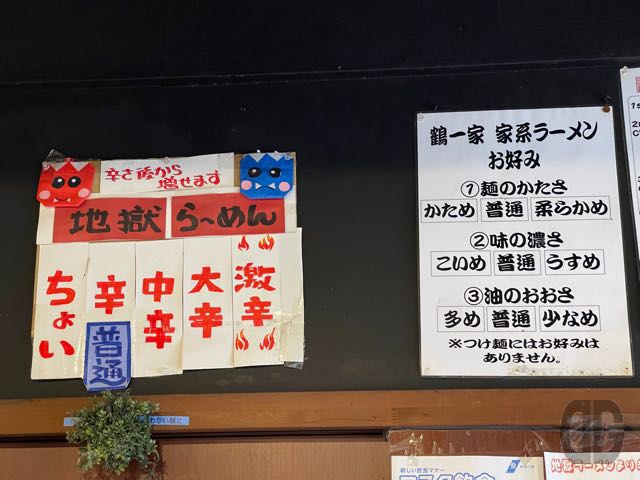 辛さ後から
増せます
地獄 らーめん
ちょい
辛
中辛
大辛
激辛
普通
鶴一家 家系ラーメン
お好み
①麺のかたさ
かため 普通 柔らかめ
②味の濃さ
こいめ 普通 うすめ
③油のおおさ
多め 普通 少なめ
※つけ麺にはお好みは
ありません。
新しい飲食マナー
地獄ラーメンより